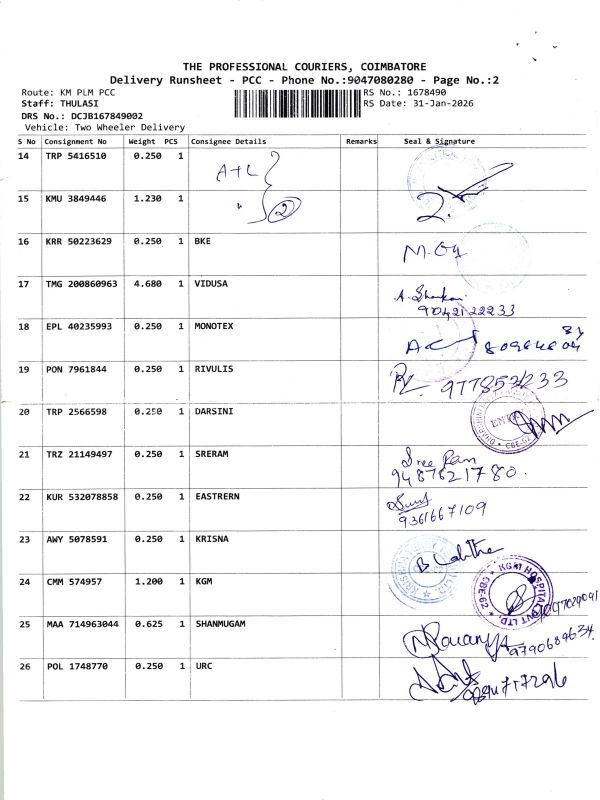 THE PROFESSIONAL COURIERS, COIMBATORE
Delivery Runsheet - PCC - Phone No.:9047080280 - Page No.:2
Route: KM PLM PCC
RS No.: 1678490
Staff: THULASI
RS Date: 31-Jan-2026
DRS No.: DCJB167849002
Vehicle: Two Wheeler Delivery
S No Consignment No Weight PCS Consignee Details Remarks Seal & Signature
14 TRP 5416510 0.250 1 A+L
15 KMU 3849446 1.230 1 " 2
16 KRR 50223629 0.250 1 BKE
17 TMG 200860963 4.680 1 VIDUSA
9042122233
18 EPL 40235993 0.250 1 MONOTEX
19 PON 7961844 0.250 1 RIVULIS
20 TRP 2566598 0.250 1 DARSINI
21 TRZ 21149497 0.250 1 SRERAM Sree Ram
9487621780.
22 KUR 532078858 0.250 1 EASTRERN
9361667109
23 AWY 5078591 0.250 1 KRISNA
24 CMM 574957 1.200 1 KGM KGM HOSPITAL PVT LTD. CBE-62
25 MAA 714963044 0.625 1 SHANMUGAM
9790689634
26 POL 1748770 0.250 1 URC